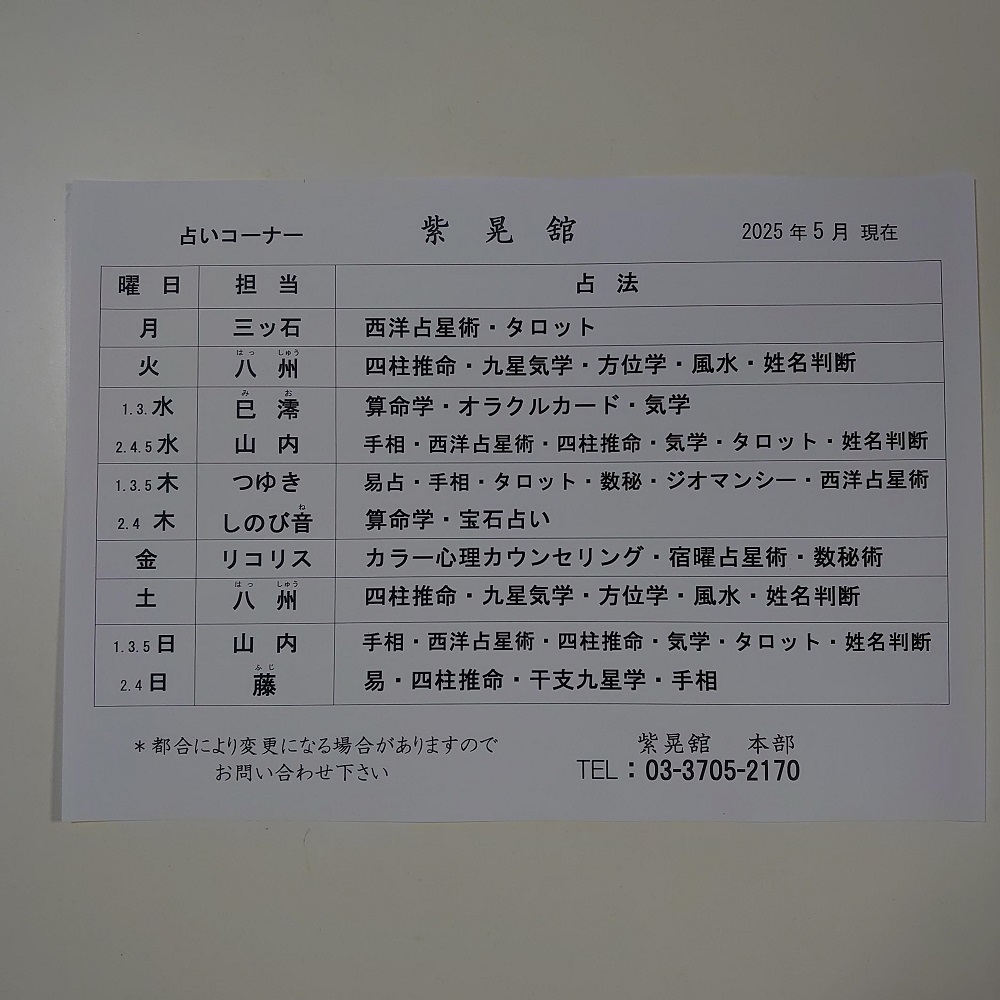 占いコーナー 紫晃舘 2025年5月 現在
曜日 担当 占法
月 三ッ石 西洋占星術・タロット
はっ しゅう
火 八州 四柱推命・九星気学・方位学・風水・姓名判断
み お
1.3.水 巳澪 算命学・オラクルカード・気学
2.4.5水 山内 手相・西洋占星術・四柱推命・気学・タロット・姓名判断
1.3.5木 つゆき 易占・手相・タロット・数秘・ジオマンシー・西洋占星術
ね
2.4 木 しのび音 算命学・宝石占い
金 リコリス カラー心理カウンセリング・宿曜占星術・数秘術
はっ しゅう
土 八州 四柱推命・九星気学・方位学・風水・姓名判断
1.3.5日 山内 手相・西洋占星術・四柱推命・気学・タロット・姓名判断
ふじ
2.4日 藤 易・四柱推命・干支九星学・手相
＊都合により変更になる場合がありますので
お問い合わせ下さい
紫晃舘 本部
TEL：03-3705-2170